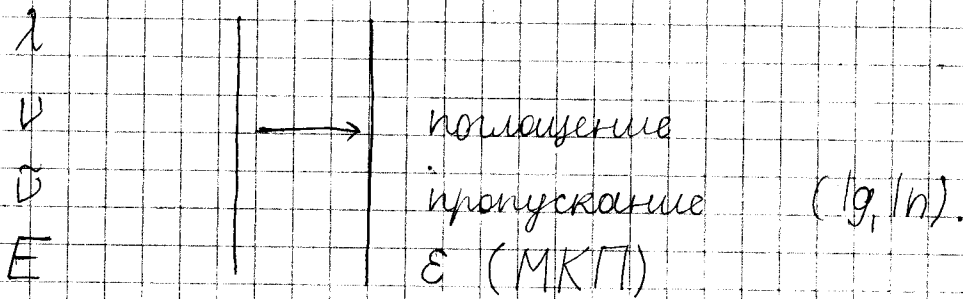 λ
ν поглощение
ν̃ пропускание (lg, ln).
E ε (МКП)